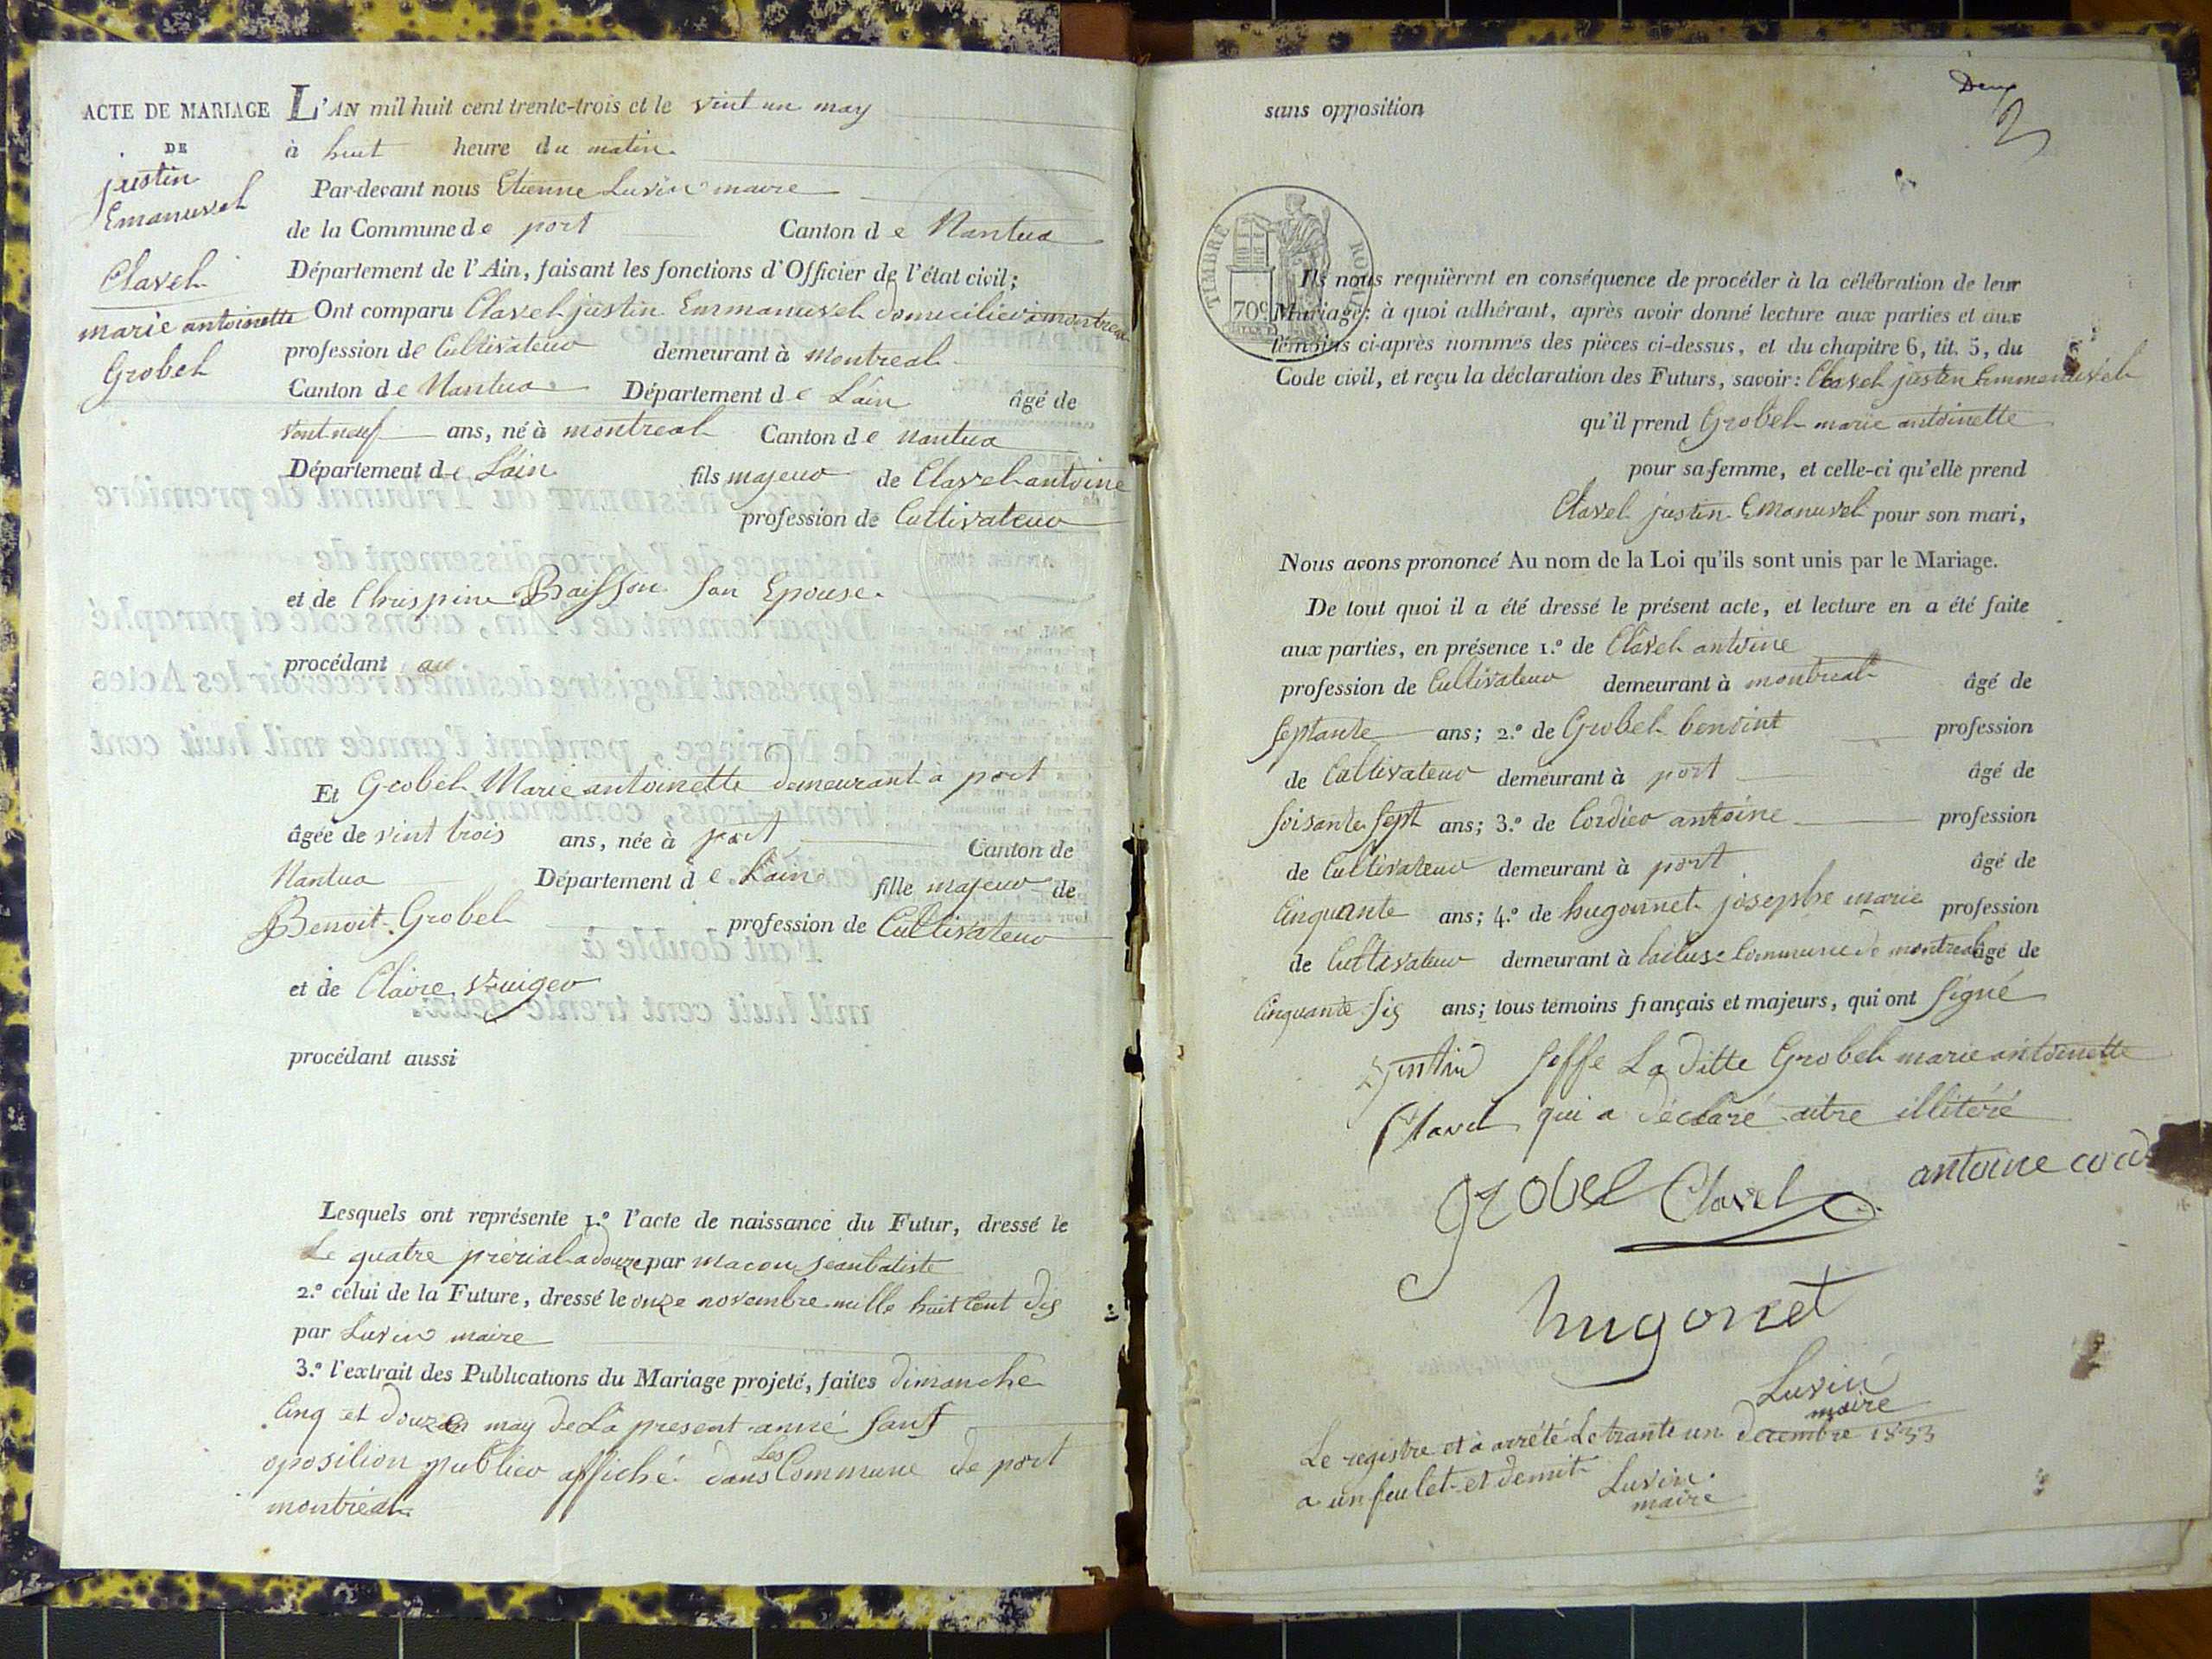 ACTE DE MARIAGE
DE
justin
Emanuvel
Clavel
marie antoinette
Grobel
L'AN mil huit cent trente-trois et le vint un may
à huit heure du matin.
Par-devant nous Etienne Luvin maire
de la Commune de port Canton de Nantua
Département de l'Ain, faisant les fonctions d'Officier de l'état civil;
Ont comparu Clavel justin Emmanuvel domicilié à montreal
profession de Cultivateur demeurant à Montreal
Canton de Nantua Département de L'ain âgé de
vint neuf ans, né à montreal Canton de nantua
Département de L'ain fils majeur de Clavel antoine
profession de Cultivateur
et de Chrispine Baisson Son Epouse.
procédant au
Et Grobel Marie antoinette demeurant à port
âgée de vint trois ans, née à port Canton de
Nantua Département de L'ain fille majeur de
Benoit Grobel profession de Cultivateur
et de Claire
procédant aussi
Lesquels ont représenté 1.º l'acte de naissance du Futur, dressé le
Le quatre prérial a douze par macon jeanbatiste
2.º celui de la Future, dressé le onze novembre mille huit Cent dis
par Luvin maire
3.º l'extrait des Publications du Mariage projeté, faites dimanche
Cinq et douze may de La present anné Sans
oposition publier affiché dans Les Commune de port
montréal.
Deux
2
sans opposition
TIMBRE ROYAL
70c
Ils nous requièrent en conséquence de procéder à la célébration de leur
Mariage: à quoi adhérant, après avoir donné lecture aux parties et aux
témoins ci-après nommés des pièces ci-dessus, et du chapitre 6, tit. 5, du
Code civil, et reçu la déclaration des Futurs, savoir: Clavel justin Emmanuvel
qu'il prend Grobel marie antoinette
pour sa femme, et celle-ci qu'elle prend
Clavel justin Emanuvel pour son mari,
Nous avons prononcé Au nom de la Loi qu'ils sont unis par le Mariage.
De tout quoi il a été dressé le présent acte, et lecture en a été faite
aux parties, en présence 1.º de Clavel antoine
profession de Cultivateur demeurant à montreal âgé de
septante ans; 2.º de Grobel benoint profession
de Cultivateur demeurant à port âgé de
soisante sept ans; 3.º de Cordier antoine profession
de Cultivateur demeurant à port âgé de
Cinquante ans; 4.º de hugonnet josephe marie profession
de Cultivateur demeurant à Commune de montreal âgé de
Cinquante sis ans; tous témoins français et majeurs, qui ont Signé
justin Soffe La ditte Grobel marie antoinette
Clavel qui a déclaré aitre illitéré
grobel Clavel antoine
hugonet
Luvin
maire
Le registre et à arrété Le trante un decembre 1833
a un feulet et demit Luvin
maire